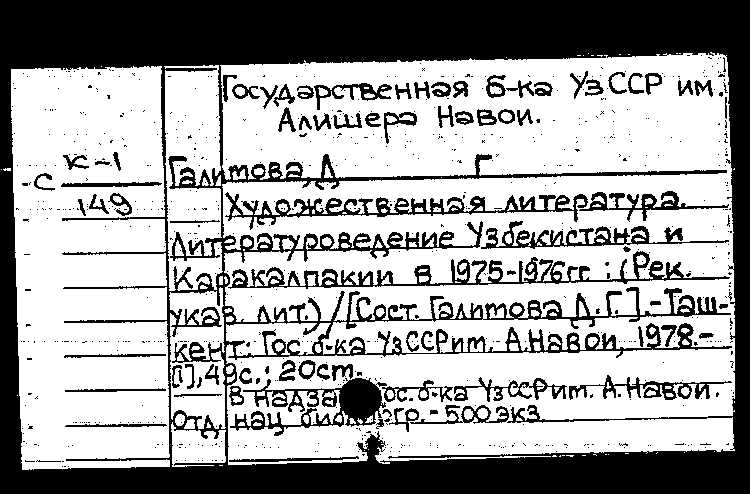 Государственная б-ка УзССР им.
Алишера Навои.
с К-1
149
Галитова, Д Г
Художественная литература.
Литературоведение Узбекистана и
Каракалпакии в 1975-1976гг : (Рек.
указ. лит.) / [Сост. Галитова Д.Г.].-Таш-
кент: Гос. б-ка УзССР им. А.Навои, 1978.-
[1], 49с.; 20см.
В надзаг. Гос. б-ка УзССР им. А.Навои.
Отд. нац. библиогр. - 500 экз